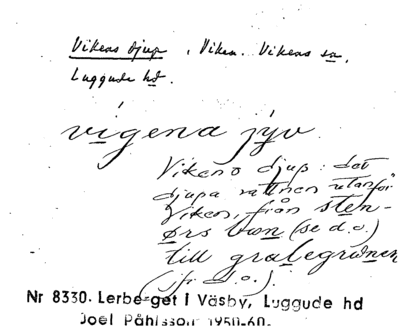 Vikens djup, Viken. Vikens sn,
Luggude hd.
vígena jyv
Vikens djup: det
djupa vattnet utanför
Viken, från sten-
ørs bæn (se d.o.)
till gralegrønen
(jfr d.o.).
Nr 8330. Lerberget i Väsby, Luggude hd
Joel Påhlsson 1950-60.